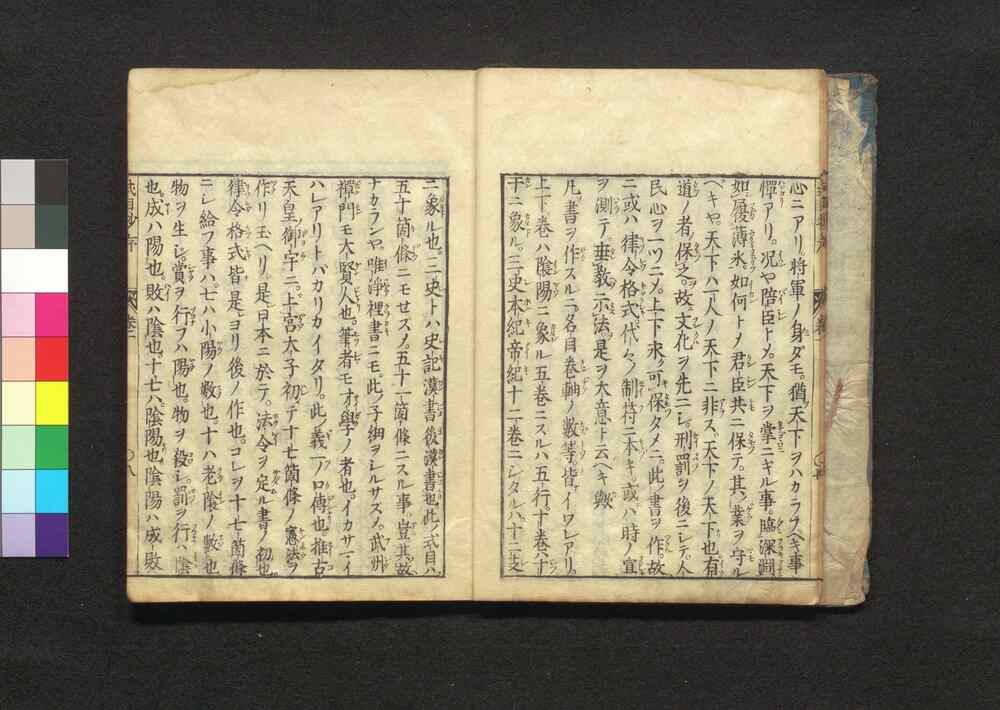 心ニアリ將軍ノ身ダモ。猶天下ヲハカラフヘキ事
憚アリ。况ヤ陪臣トメ。天下ヲ掌ニキル事。臨深淵
如履薄氷。如何トメ君臣共ニ保テ。其ノ業ヲ守ル
ヘキヤ。天下ハ一人ノ天下ニ非ス。天下ノ天下也。有
道ノ者保之。故ニ文化ヲ先ニシ。刑罰ヲ後ニシテ。人
民心ヲ一ツニメ。上下永ク可保タメニ。此ノ書ヲ作。故
ニ或ハ律令格式代々ノ制符ニ本キ。或ハ時ノ宜
ヲ測テ垂敎示法是ヲ大意ト云ヘキ歟
凡書ヲ作スルニ。名目卷軸ノ數等皆イワレアリ。
上下二卷ハ陰陽ニ象ル五卷ニスルハ五行。十卷ハ十
干ニ象ル。三史本紀帝紀十二卷ニシタルハ十二支
ニ象ル也。三史トハ史記漢書後漢書也。此ノ式目ハ
五十箇條ニモせスメ。五十一箇條ニスル事。豈其故
ナカランヤ。唯淨裡書ニモ。此ノ子細ヲシルサスメ。武州
禪門モ大賢人也。筆者モオ學ノ者也。イカサマイ
ハレアリトバカリカイタリ。此義一ノ口傳也。推古
天皇ノ御宇ニ。上宮太子初テ十七箇條ノ憲法ヲ
作リ玉ヘリ。是日本ニ於テ。法令ヲ定ル書ノ初也
律令格式皆是ヨリ後ノ作也。コレヲ十七箇條
ニシ給フ事ハ。七ハ小陽ノ數也。十ハ老陰ノ數也
物ヲ生シ。賞ヲ行フハ陽也。物ヲ殺シ。罰ヲ行ハ陰
也。成ハ陽也。敗ハ陰也。十七ハ陰陽也。陰陽ハ成敗
式目抄序 卷一 〇八